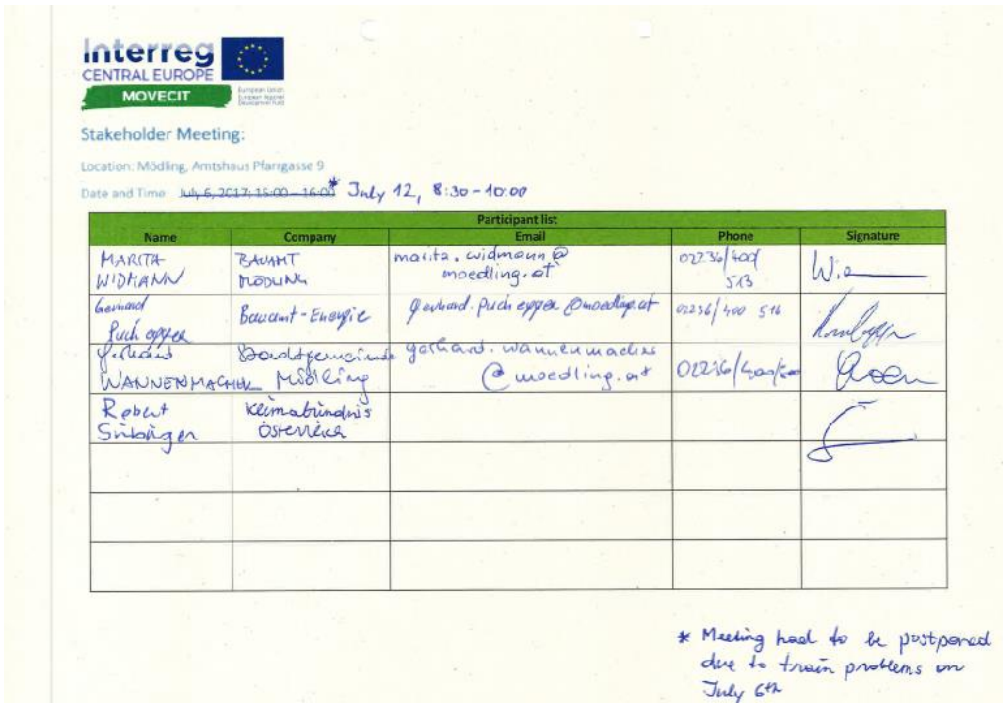 Interreg
CENTRAL EUROPE
MOVECIT
European Union
European Regional
Development Fund
Stakeholder Meeting:
Location: Mödling, Amtshaus Pfarrgasse 9
Date and Time: July 6, 2017; 15:00 – 16:00 * July 12, 8:30 - 10:00
Participant list
Name Company Email Phone Signature
MARITA BAUAMT marita.widmann@ 02236/400/
WIDMANN MÖDLING moedling.at 513
Gerhard
Puchegger Bauamt-Energie gerhard.puchegger@moedling.at 02236/400 516
Gerhard Stadtgemeinde gerhard.wannenmacher
WANNENMACHER Mödling @moedling.at 02236/400/
Robert Klimabündnis
Österreich
* Meeting had to be postponed
due to train problems on
July 6th